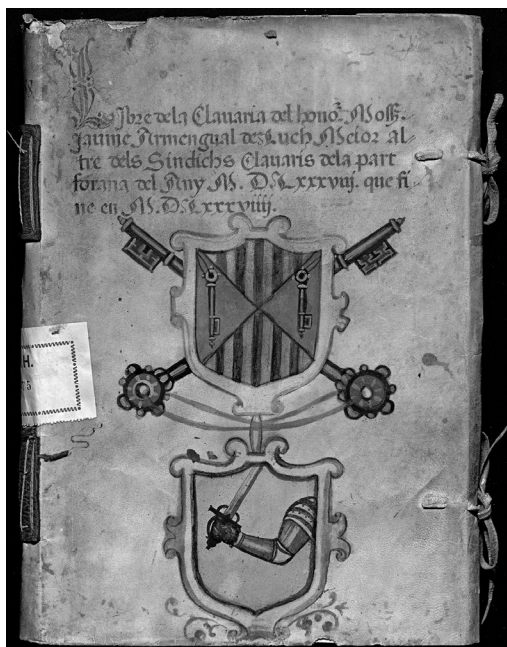 Libre dela Clauaria del honor. Moss.
Jaume Armengual dez Luch Meior al-
tre dels Sindichs Clauaris dela part
forana del Any M. D. Lxxxviij. que fi-
ne en M. D. Lxxxviiij.
H.
5